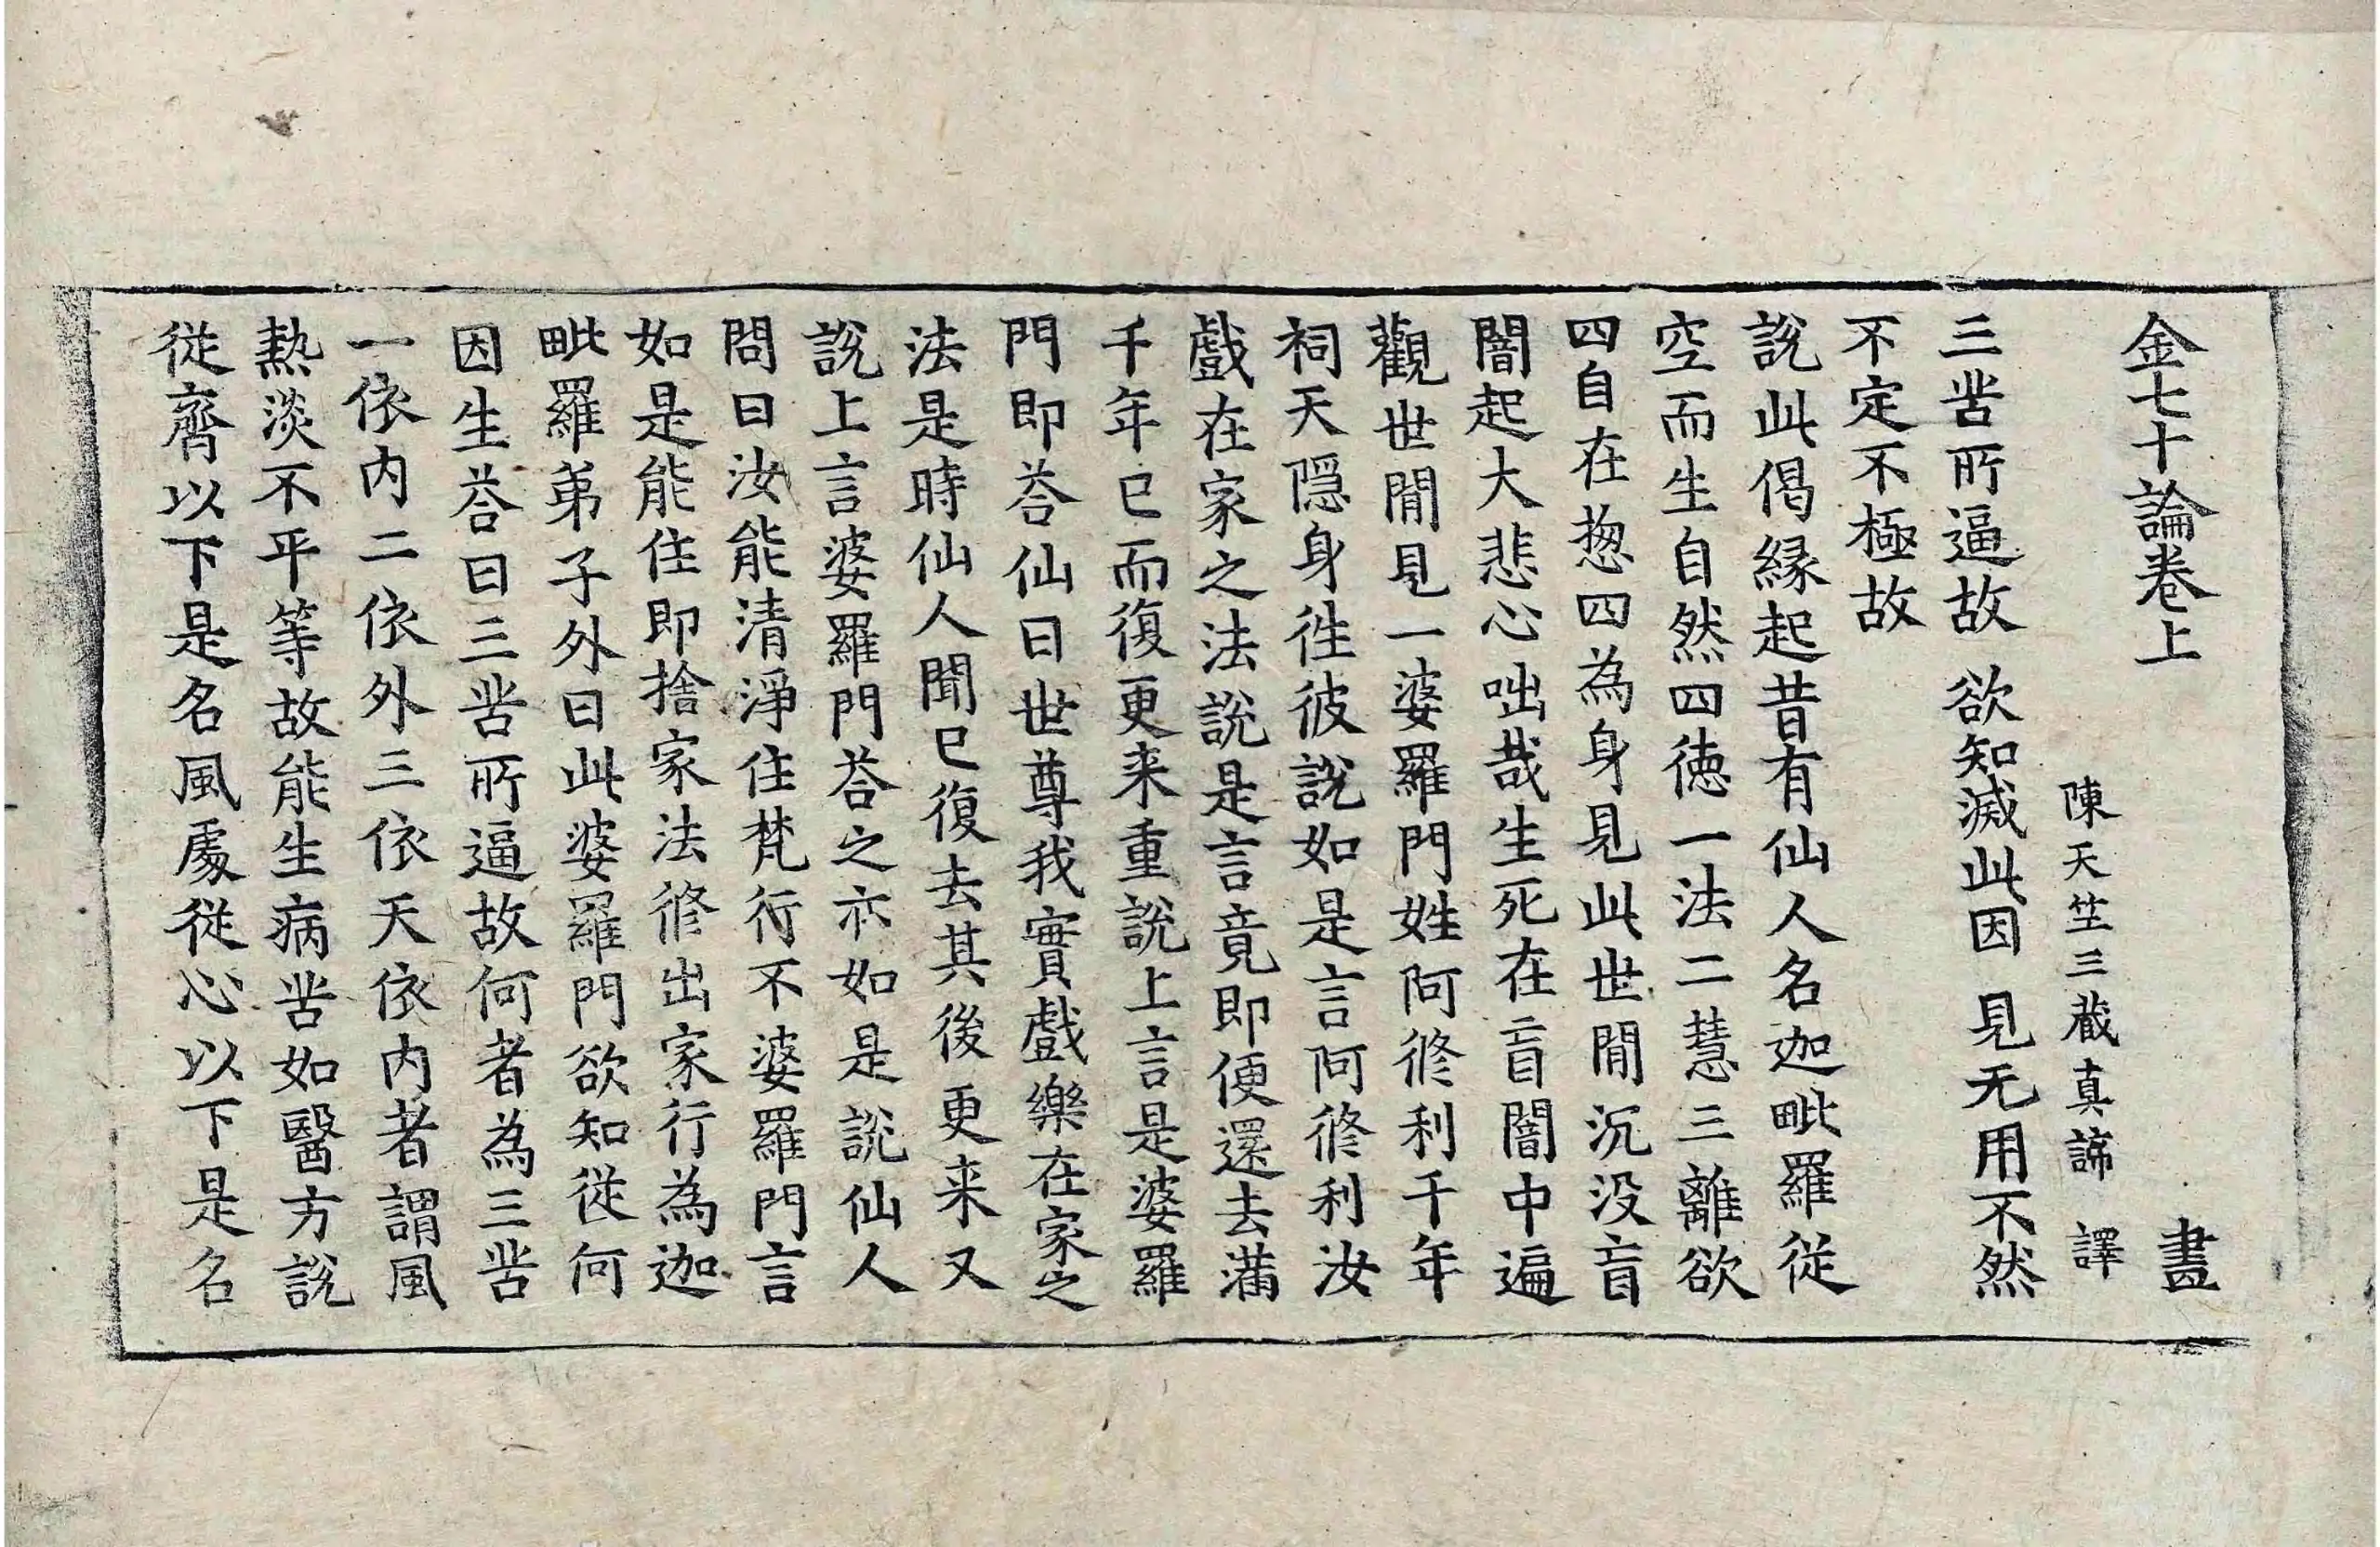 金七十論卷上 晝
陳天竺三藏真諦 譯
三苦所逼故 欲知滅此因 見无用不然
不定不極故
說此偈縁起昔有仙人名迦毗羅從
空而生自然四德一法二慧三離欲
四自在揔四為身見此世間沉没盲
闇起大悲心咄哉生死在盲闇中遍
觀世間見一婆羅門姓阿修利千年
祠天隱身往彼說如是言阿修利汝
戲在家之法說是言竟即便還去滿
千年已而復更来重說上言是婆羅
門即荅仙曰世尊我實戲樂在家之
法是時仙人聞已復去其後更来又
說上言婆羅門荅之亦如是說仙人
問曰汝能清淨住梵行不婆羅門言
如是能住即捨家法修出家行為迦
毗羅弟子外曰此婆羅門欲知從何
因生荅曰三苦所逼故何者為三苦
一依内二依外三依天依内者謂風
熱淡不平等故能生病苦如醫方說
從齊以下是名風處從心以下是名